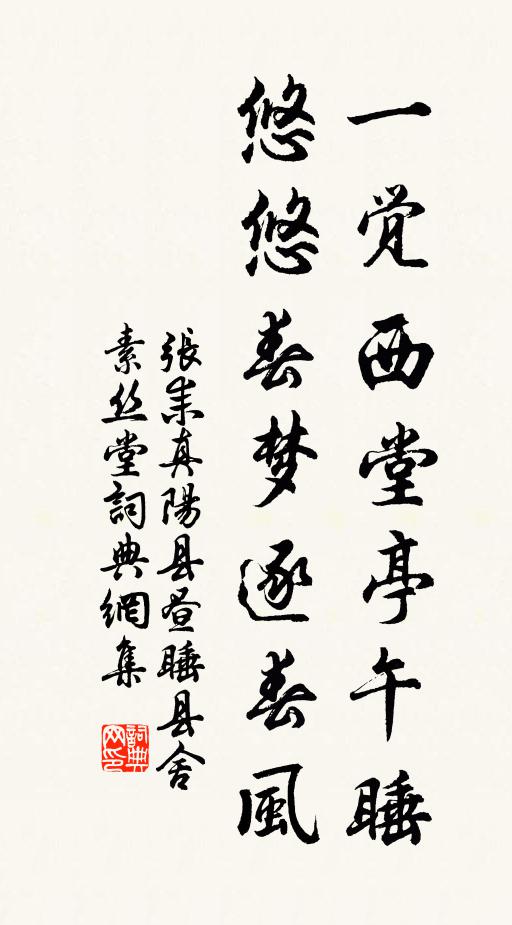 一觉西堂亭午睡
悠悠春梦逐春風
張耒真陽县昼睡县舍
素丝堂詞典網集
詞典网印